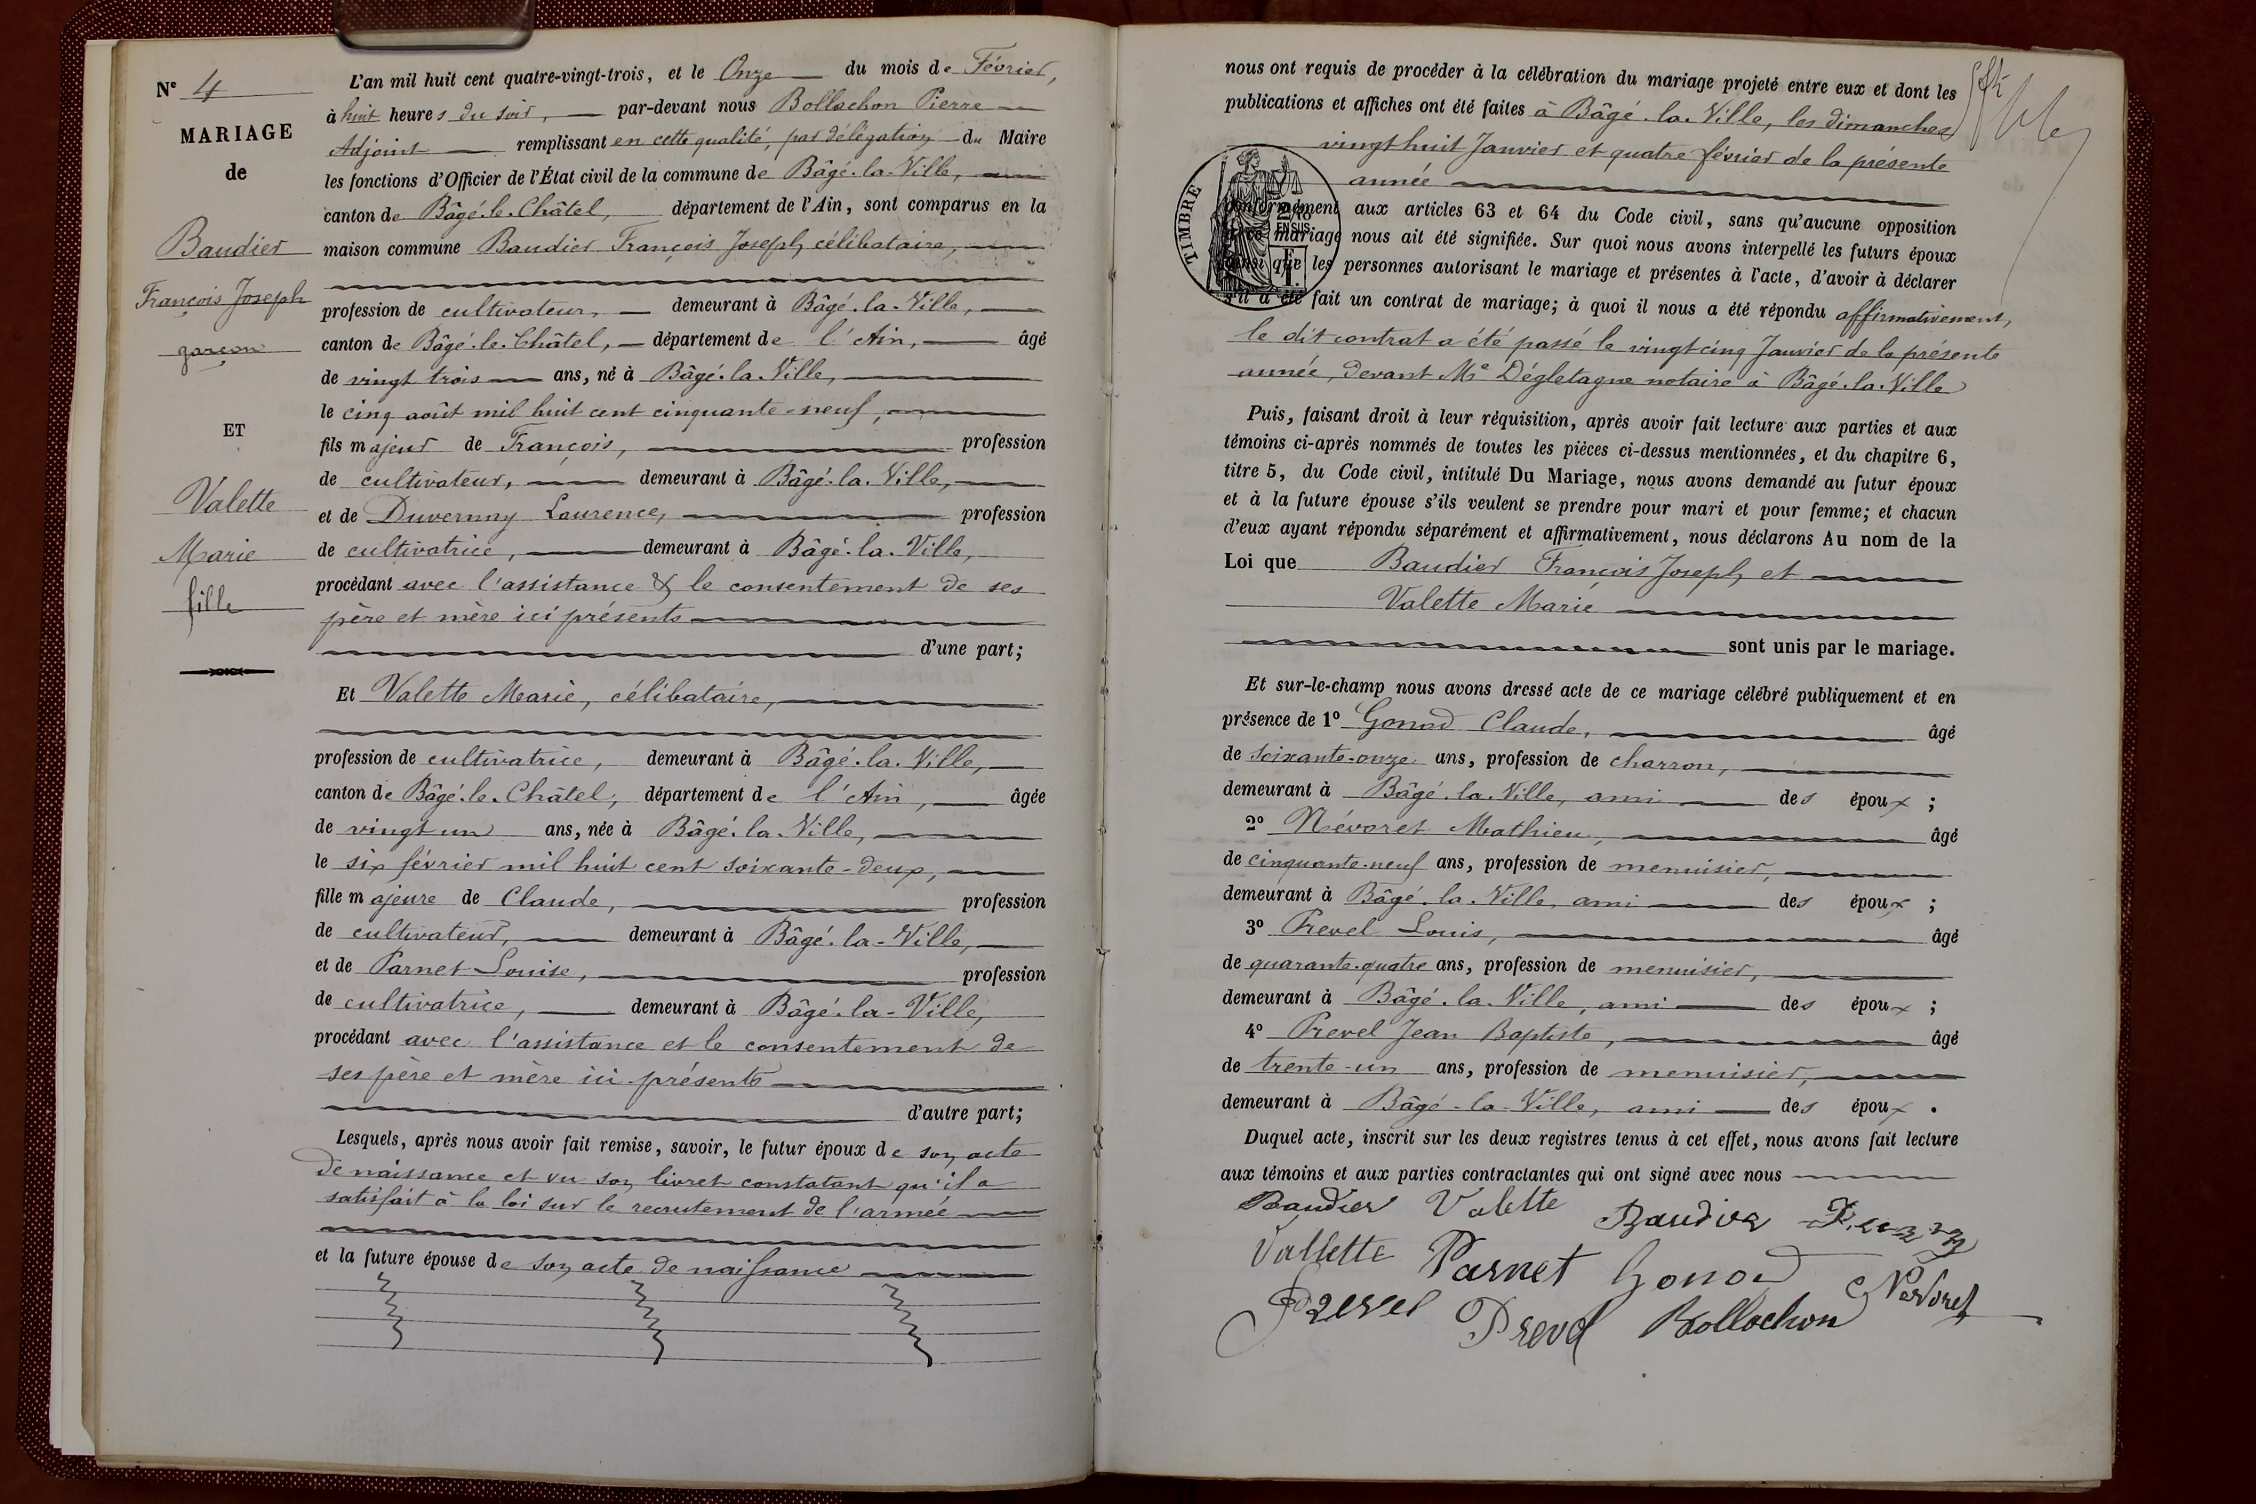 N° 4
MARIAGE
de
Baudier
François Joseph
garçon
ET
Valette
Marie
fille
L'an mil huit cent quatre-vingt-trois, et le Onze du mois de Février,
à huit heures du soir, par-devant nous Bollochon Pierre
Adjoint remplissant en cette qualité, par délégation du Maire
les fonctions d'Officier de l'État civil de la commune de Bâgé-la-Ville,
canton de Bâgé-le-Châtel, département de l'Ain, sont comparus en la
maison commune Baudier François Joseph, célibataire,
profession de cultivateur, demeurant à Bâgé-la-Ville,
canton de Bâgé-le-Châtel, département de l'Ain, âgé
de vingt trois ans, né à Bâgé-la-Ville,
le cinq août mil huit cent cinquante-neuf,
fils majeur de François, profession
de cultivateur, demeurant à Bâgé-la-Ville,
et de Duvernay Laurence, profession
de cultivatrice, demeurant à Bâgé-la-Ville,
procédant avec l'assistance & le consentement de ses
père et mère ici présents
d'une part;
Et Valette Marie, célibataire,
profession de cultivatrice, demeurant à Bâgé-la-Ville,
canton de Bâgé-le-Châtel, département de l'Ain, âgée
de vingt un ans, née à Bâgé-la-Ville,
le six février mil huit cent soixante-deux,
fille majeure de Claude, profession
de cultivateur, demeurant à Bâgé-la-Ville,
et de Parnet Louise, profession
de cultivatrice, demeurant à Bâgé-la-Ville,
procédant avec l'assistance et le consentement de
ses père et mère ici présents
d'autre part;
Lesquels, après nous avoir fait remise, savoir, le futur époux de son acte
de naissance et vu son livret constatant qu'il a
satisfait à la loi sur le recrutement de l'armée
et la future épouse de son acte de naissance
nous ont requis de procéder à la célébration du mariage projeté entre eux et dont les
publications et affiches ont été faites à Bâgé-la-Ville, les dimanches
vingt huit Janvier et quatre février de la présente
année
TIMBRE
EN SUS
conformément aux articles 63 et 64 du Code civil, sans qu'aucune opposition
à ce mariage nous ait été signifiée. Sur quoi nous avons interpellé les futurs époux
ainsi que les personnes autorisant le mariage et présentes à l'acte, d'avoir à déclarer
s'il a été fait un contrat de mariage; à quoi il nous a été répondu affirmativement,
le dit contrat a été passé le vingt cinq Janvier de la présente
année, devant Me Dégletagne notaire à Bâgé-la-Ville
Puis, faisant droit à leur réquisition, après avoir fait lecture aux parties et aux
témoins ci-après nommés de toutes les pièces ci-dessus mentionnées, et du chapitre 6,
titre 5, du Code civil, intitulé Du Mariage, nous avons demandé au futur époux
et à la future épouse s'ils veulent se prendre pour mari et pour femme; et chacun
d'eux ayant répondu séparément et affirmativement, nous déclarons Au nom de la
Loi que Baudier François Joseph, et
Valette Marie
sont unis par le mariage.
Et sur-le-champ nous avons dressé acte de ce mariage célébré publiquement et en
présence de 1° Gonod Claude, âgé
de soixante-onze ans, profession de charron,
demeurant à Bâgé-la-Ville, ami des époux ;
2° Névoret Mathieu, âgé
de cinquante-neuf ans, profession de menuisier,
demeurant à Bâgé-la-Ville, ami des époux ;
3° Prevel Louis, âgé
de quarante-quatre ans, profession de menuisier,
demeurant à Bâgé-la-Ville, ami des époux ;
4° Prevel Jean Baptiste, âgé
de trente-un ans, profession de menuisier,
demeurant à Bâgé-la-Ville, ami des époux .
Duquel acte, inscrit sur les deux registres tenus à cet effet, nous avons fait lecture
aux témoins et aux parties contractantes qui ont signé avec nous
Baudier Valette Baudier
Vallette Parnet Gonod Nevoret
Prevel Prevel Bollochon